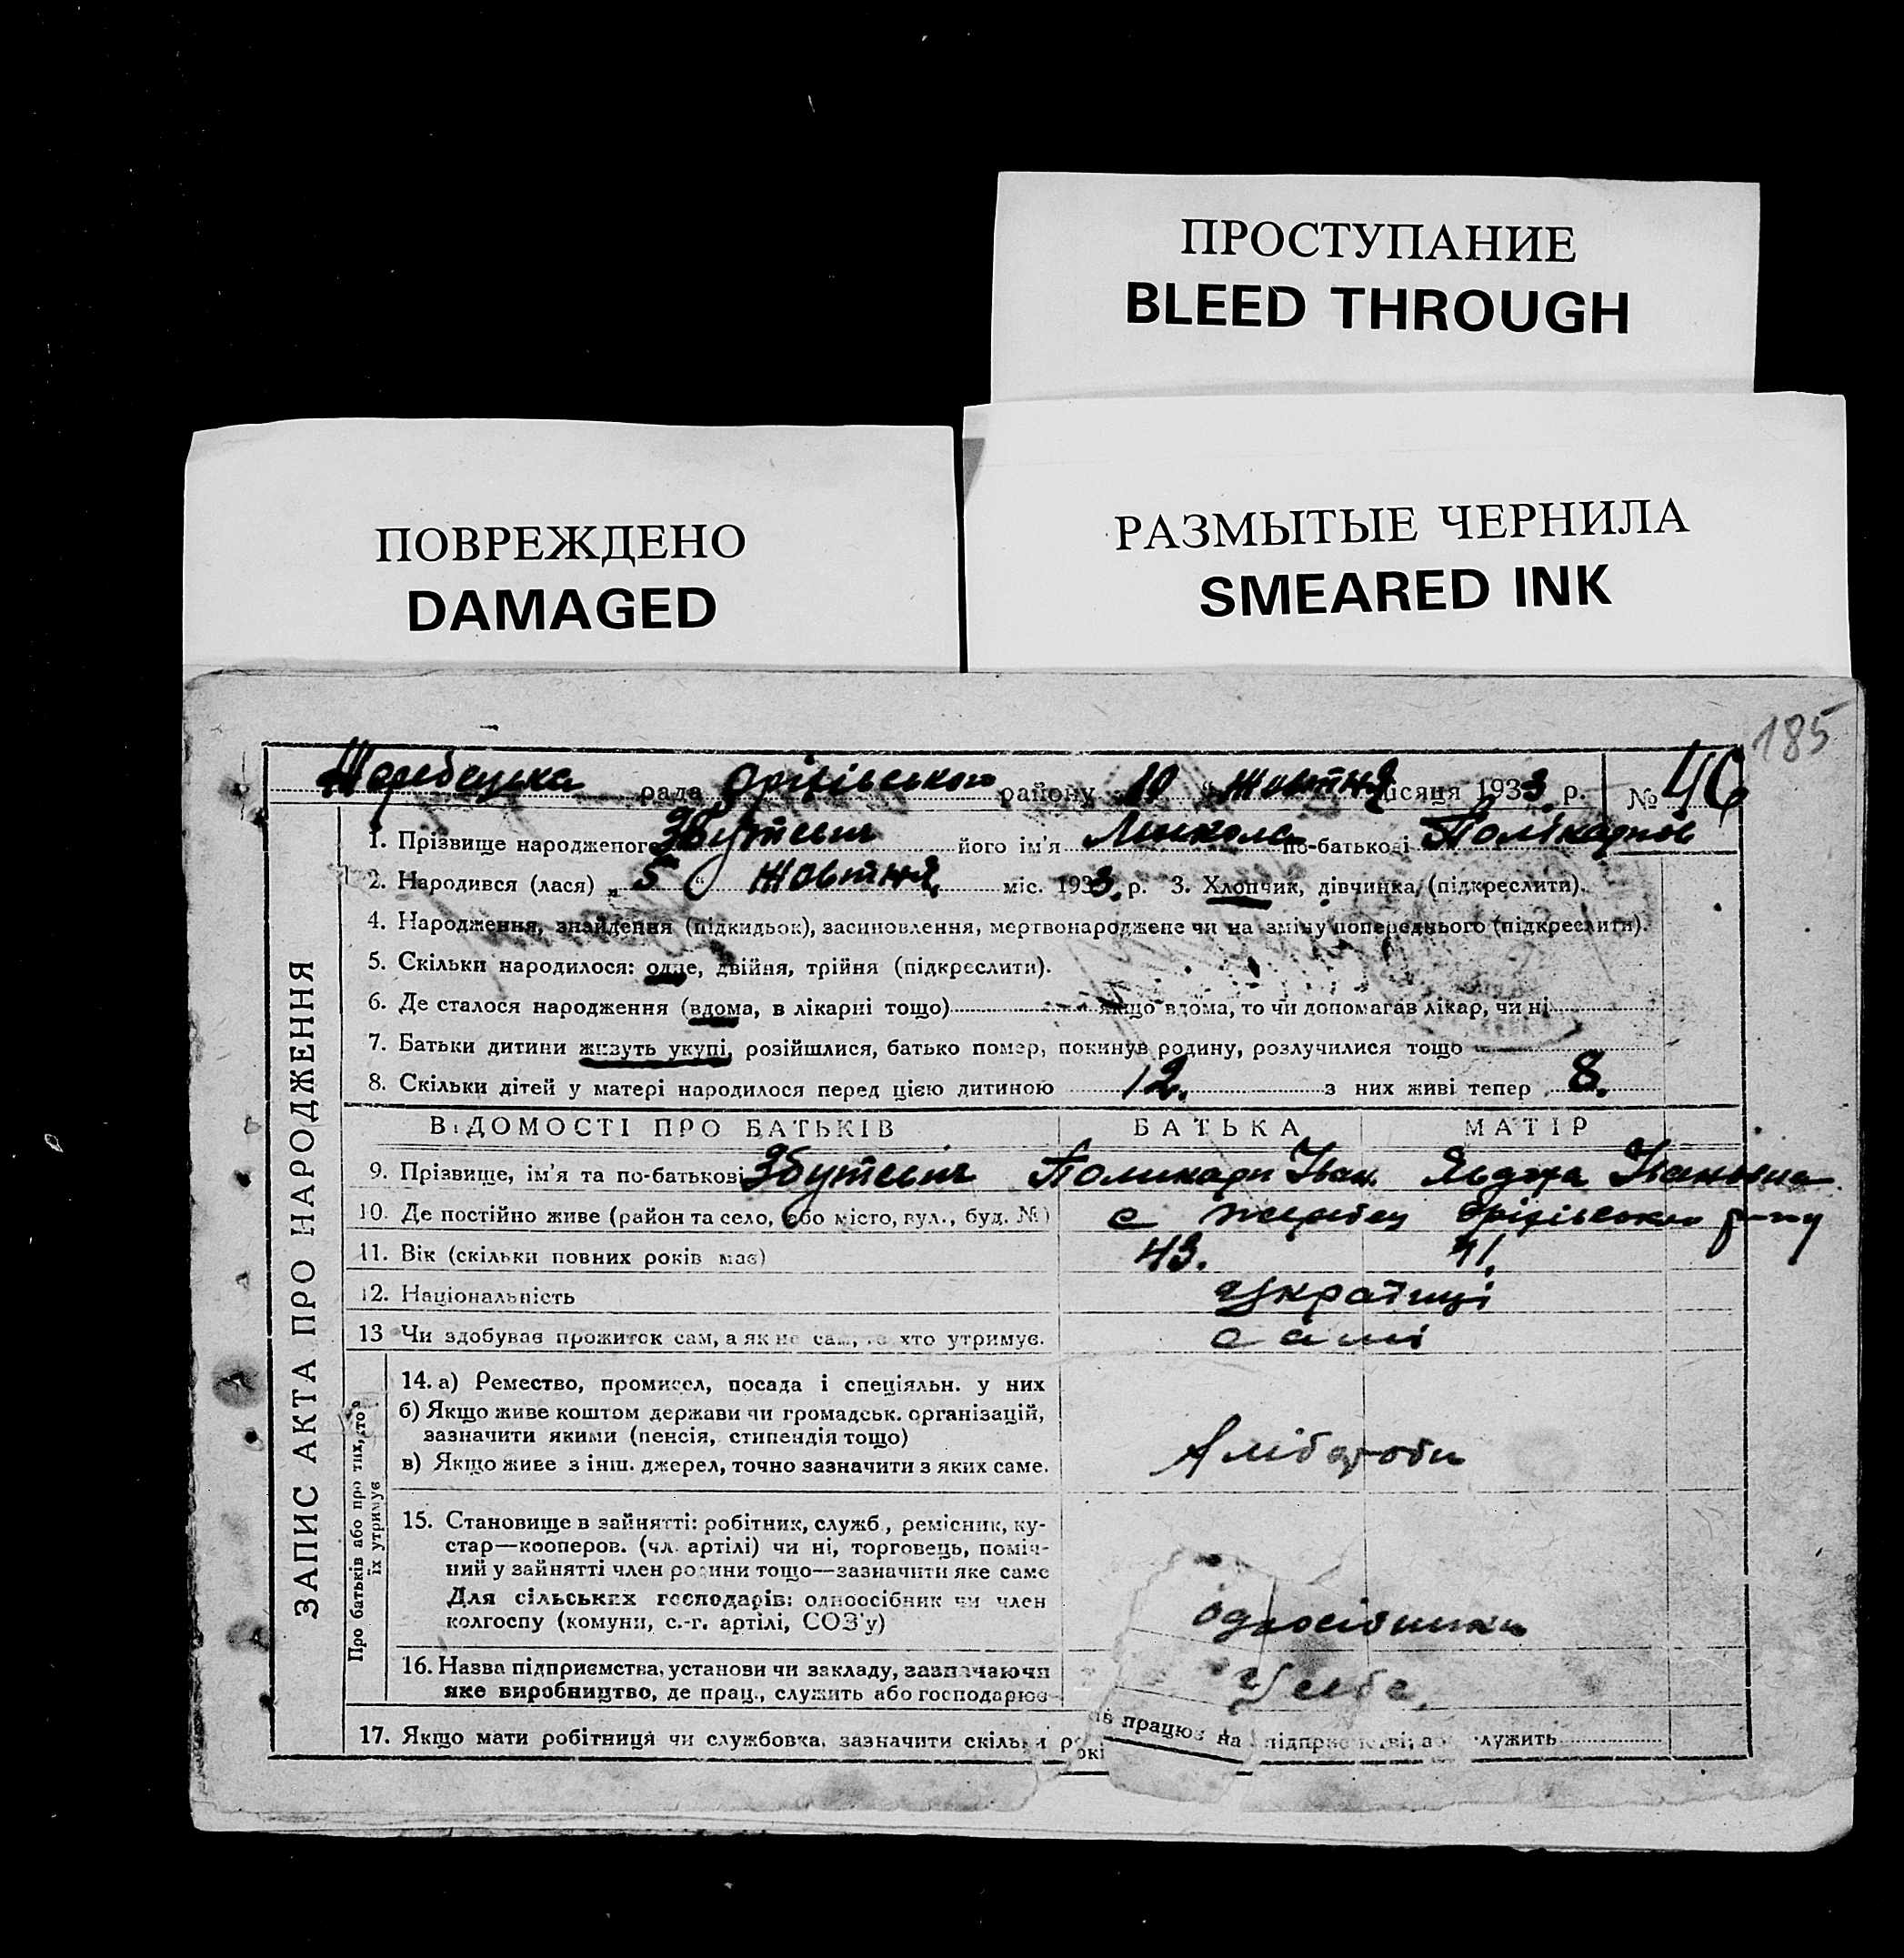 ПРОСТУПАНИЕ
BLEED THROUGH
ПОВРЕЖДЕНО
DAMAGED
РАЗМЫТЫЕ ЧЕРНИЛА
SMEARED INK
185
Жеребецька рада Оріхівського району 10 " Жовтня місяця 1933. р. № 46
1. Прізвище народженого його ім'я Микола по-батькові
2. Народився (лася) „ 5 " Жовтня. міс. 1933. р. 3. Хлопчик, дівчинка, (підкреслити).
4. Народження, знайдення (підкидьок), засиновлення, мертвонароджене чи на зміну попереднього (підкреслити).
5. Скільки народилося: одне, двійня, трійня (підкреслити).
6. Де сталося народження (вдома, в лікарні тощо) якщо вдома, то чи допомагав лікар, чи ні
7. Батьки дитини живуть укупі, розійшлися, батько помер, покинув родину, розлучилися тощо
8. Скільки дітей у матері народилося перед цією дитиною 12. з них живі тепер 8.
ВІДОМОСТІ ПРО БАТЬКІВ БАТЬКА МАТІР
9. Прізвище, ім'я та по-батькові Поликарп Іван. Явдоха Івановна
10. Де постійно живе (район та село, або місто, вул., буд. №) с Жеребец Оріхівського р-ну
11. Вік (скільки повних років має) 43. 41.
12. Національність Українці
13 Чи здобуває прожиток сам, а як не сам, то хто утримує. самі
ЗАПИС АКТА ПРО НАРОДЖЕННЯ
Про батьків або про тих, хто
їх утримує
14. а) Ремество, промисел, посада і спеціяльн. у них
б) Якщо живе коштом держави чи громадськ. організацій,
зазначити якими (пенсія, стипендія тощо)
в) Якщо живе з інш. джерел, точно зазначити з яких саме.
Хлібороби
15. Становище в зайнятті: робітник, служб., ремісник, ку-
стар—кооперов. (чл. артілі) чи ні, торговець, поміч-
ний у зайнятті член родини тощо—зазначити яке саме
Для сільських господарів: одноосібник чи член
колгоспу (комуни, с.-г. артілі, СОЗ'у)
одноосібники
16. Назва підприємства, установи чи закладу, зазначаючи
яке виробництво, де прац., служить або господарює
У себе.
17. Якщо мати робітниця чи службовка, зазначити скільки років працює на підприємстві, або служить